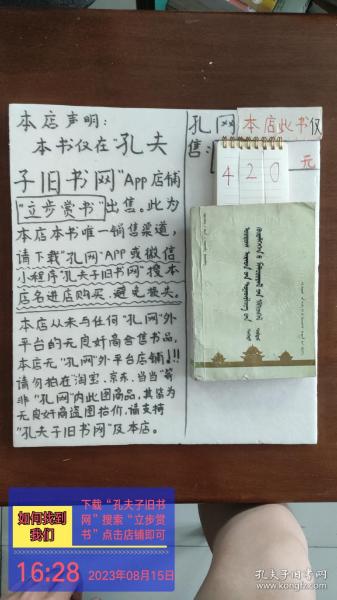 本店声明：
本书仅在“孔夫
子旧书网”App店铺
“立步赏书”出售。此为
本店本书唯一销售渠道，
请下载“孔网”APP或微信
小程序“孔夫子旧书网”搜本
店名进店购买，避免损失。
本店从未与任何“孔网”外
平台的无良奸商合售书品，
本店无“孔网”外平台店铺!!!
请勿拍在“淘宝、京东、当当”等
非“孔网”内此图商品，其皆为
无良奸商盗图抬价，请支持
“孔夫子旧书网”及本店。
孔网本店此书仅
售：
420元
如何找到
我们
下载“孔夫子旧书
网”搜索“立步赏
书”点击店铺即可
16:28
2023年08月15日
孔夫子旧书网